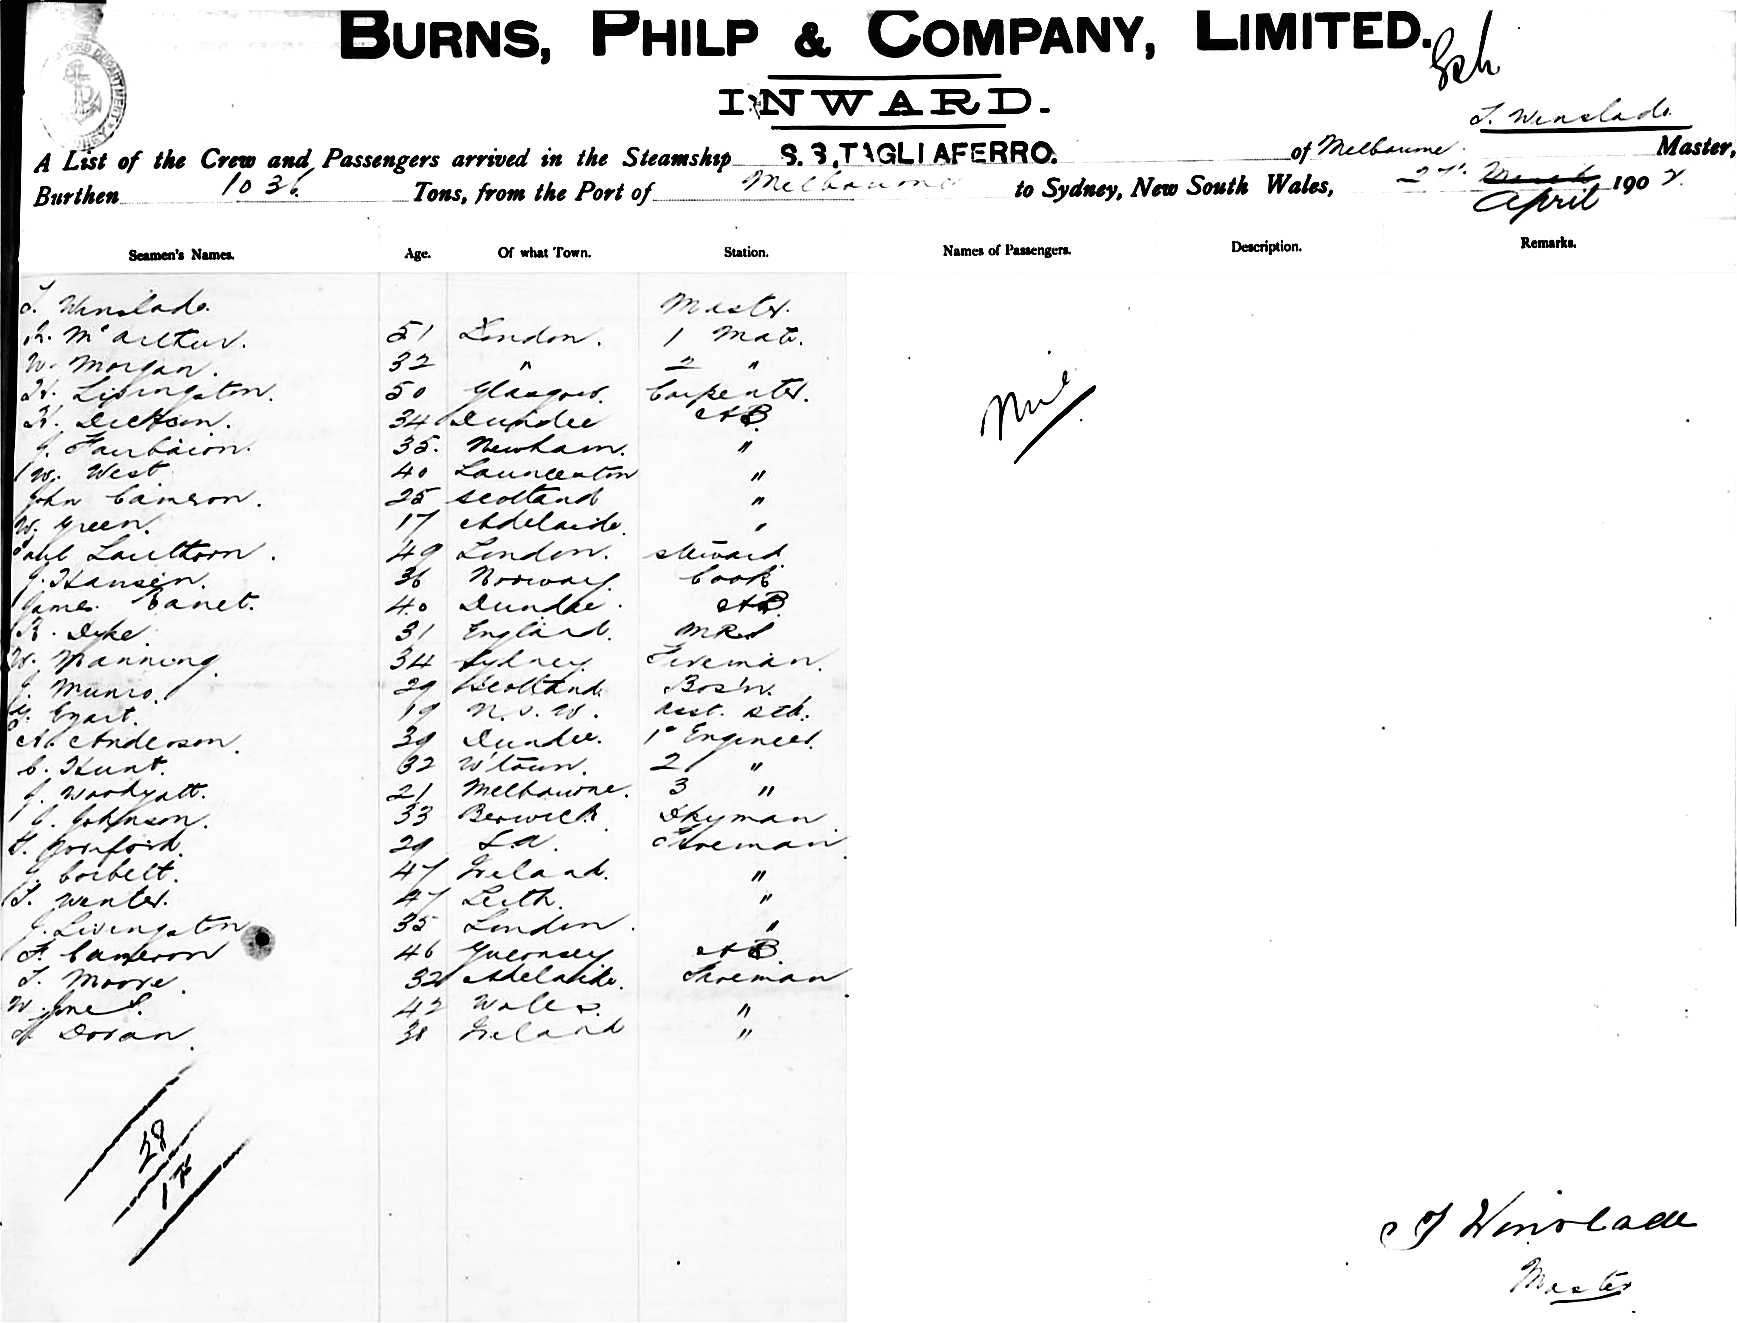 BURNS, PHILP & COMPANY, LIMITED.
INWARD.
T. Winslade
A List of the Crew and Passengers arrived in the Steamship S.S. TAGLIAFERRO. of Melbourne Master,
Burthen 1036 Tons, from the Port of Melbourne to Sydney, New South Wales, 2nd March April 1902
Seamen's Names. Age. Of what Town. Station. Names of Passengers. Description. Remarks.
T. Winslade. Master.
Mc Arthur. 51 London. 1 Mate.
W. Morgan. 32 " 2 "
H. Livingston. 50 Glasgow. Carpenter.
Nil
34 Dundee AB
J. Fairbairn. 35. Newham. "
W. West 40 Launceston "
John Cameron. 25 Scotland "
W. Green. 17 Adelaide. "
Paul 49 London. Steward
J. Hansen. 36 Norway. Cook
James 40 Dundee. AB
R. Dyke. 31 England. M.R.S
W. Manning. 34 Sydney. Fireman.
J. Munro. 29 Scotland. Bos'n.
19 N.S.W. Asst. Std.
A. Anderson. 39 Dundee. 1st Engineer.
C. Hunt. 32 W'town. 2 "
J. Woodyatt. 21 Melbourne. 3 "
J. Johnson. 33 Berwick Dkyman
29 S.A. Fireman
J. Corbett. 47 Ireland. "
T. Winter. 47 Leith. "
J. Livingston 35 London. "
F. Cameron 46 Guernsey AB
T. Moore. 32 Adelaide. Fireman
W. 42 Wales. "
Doran 38 Ireland "
28
T Winslade
Master